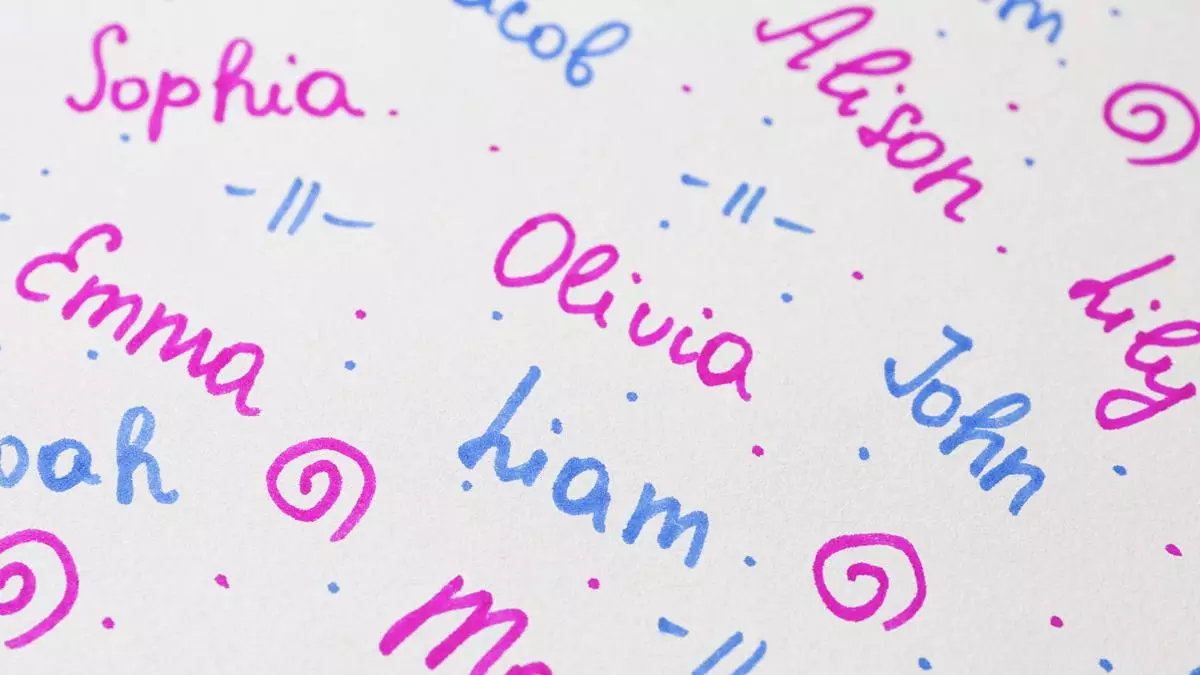 Sophia
acob
Alison
m
Emma
Olivia
Lily
John
oah
Liam
M